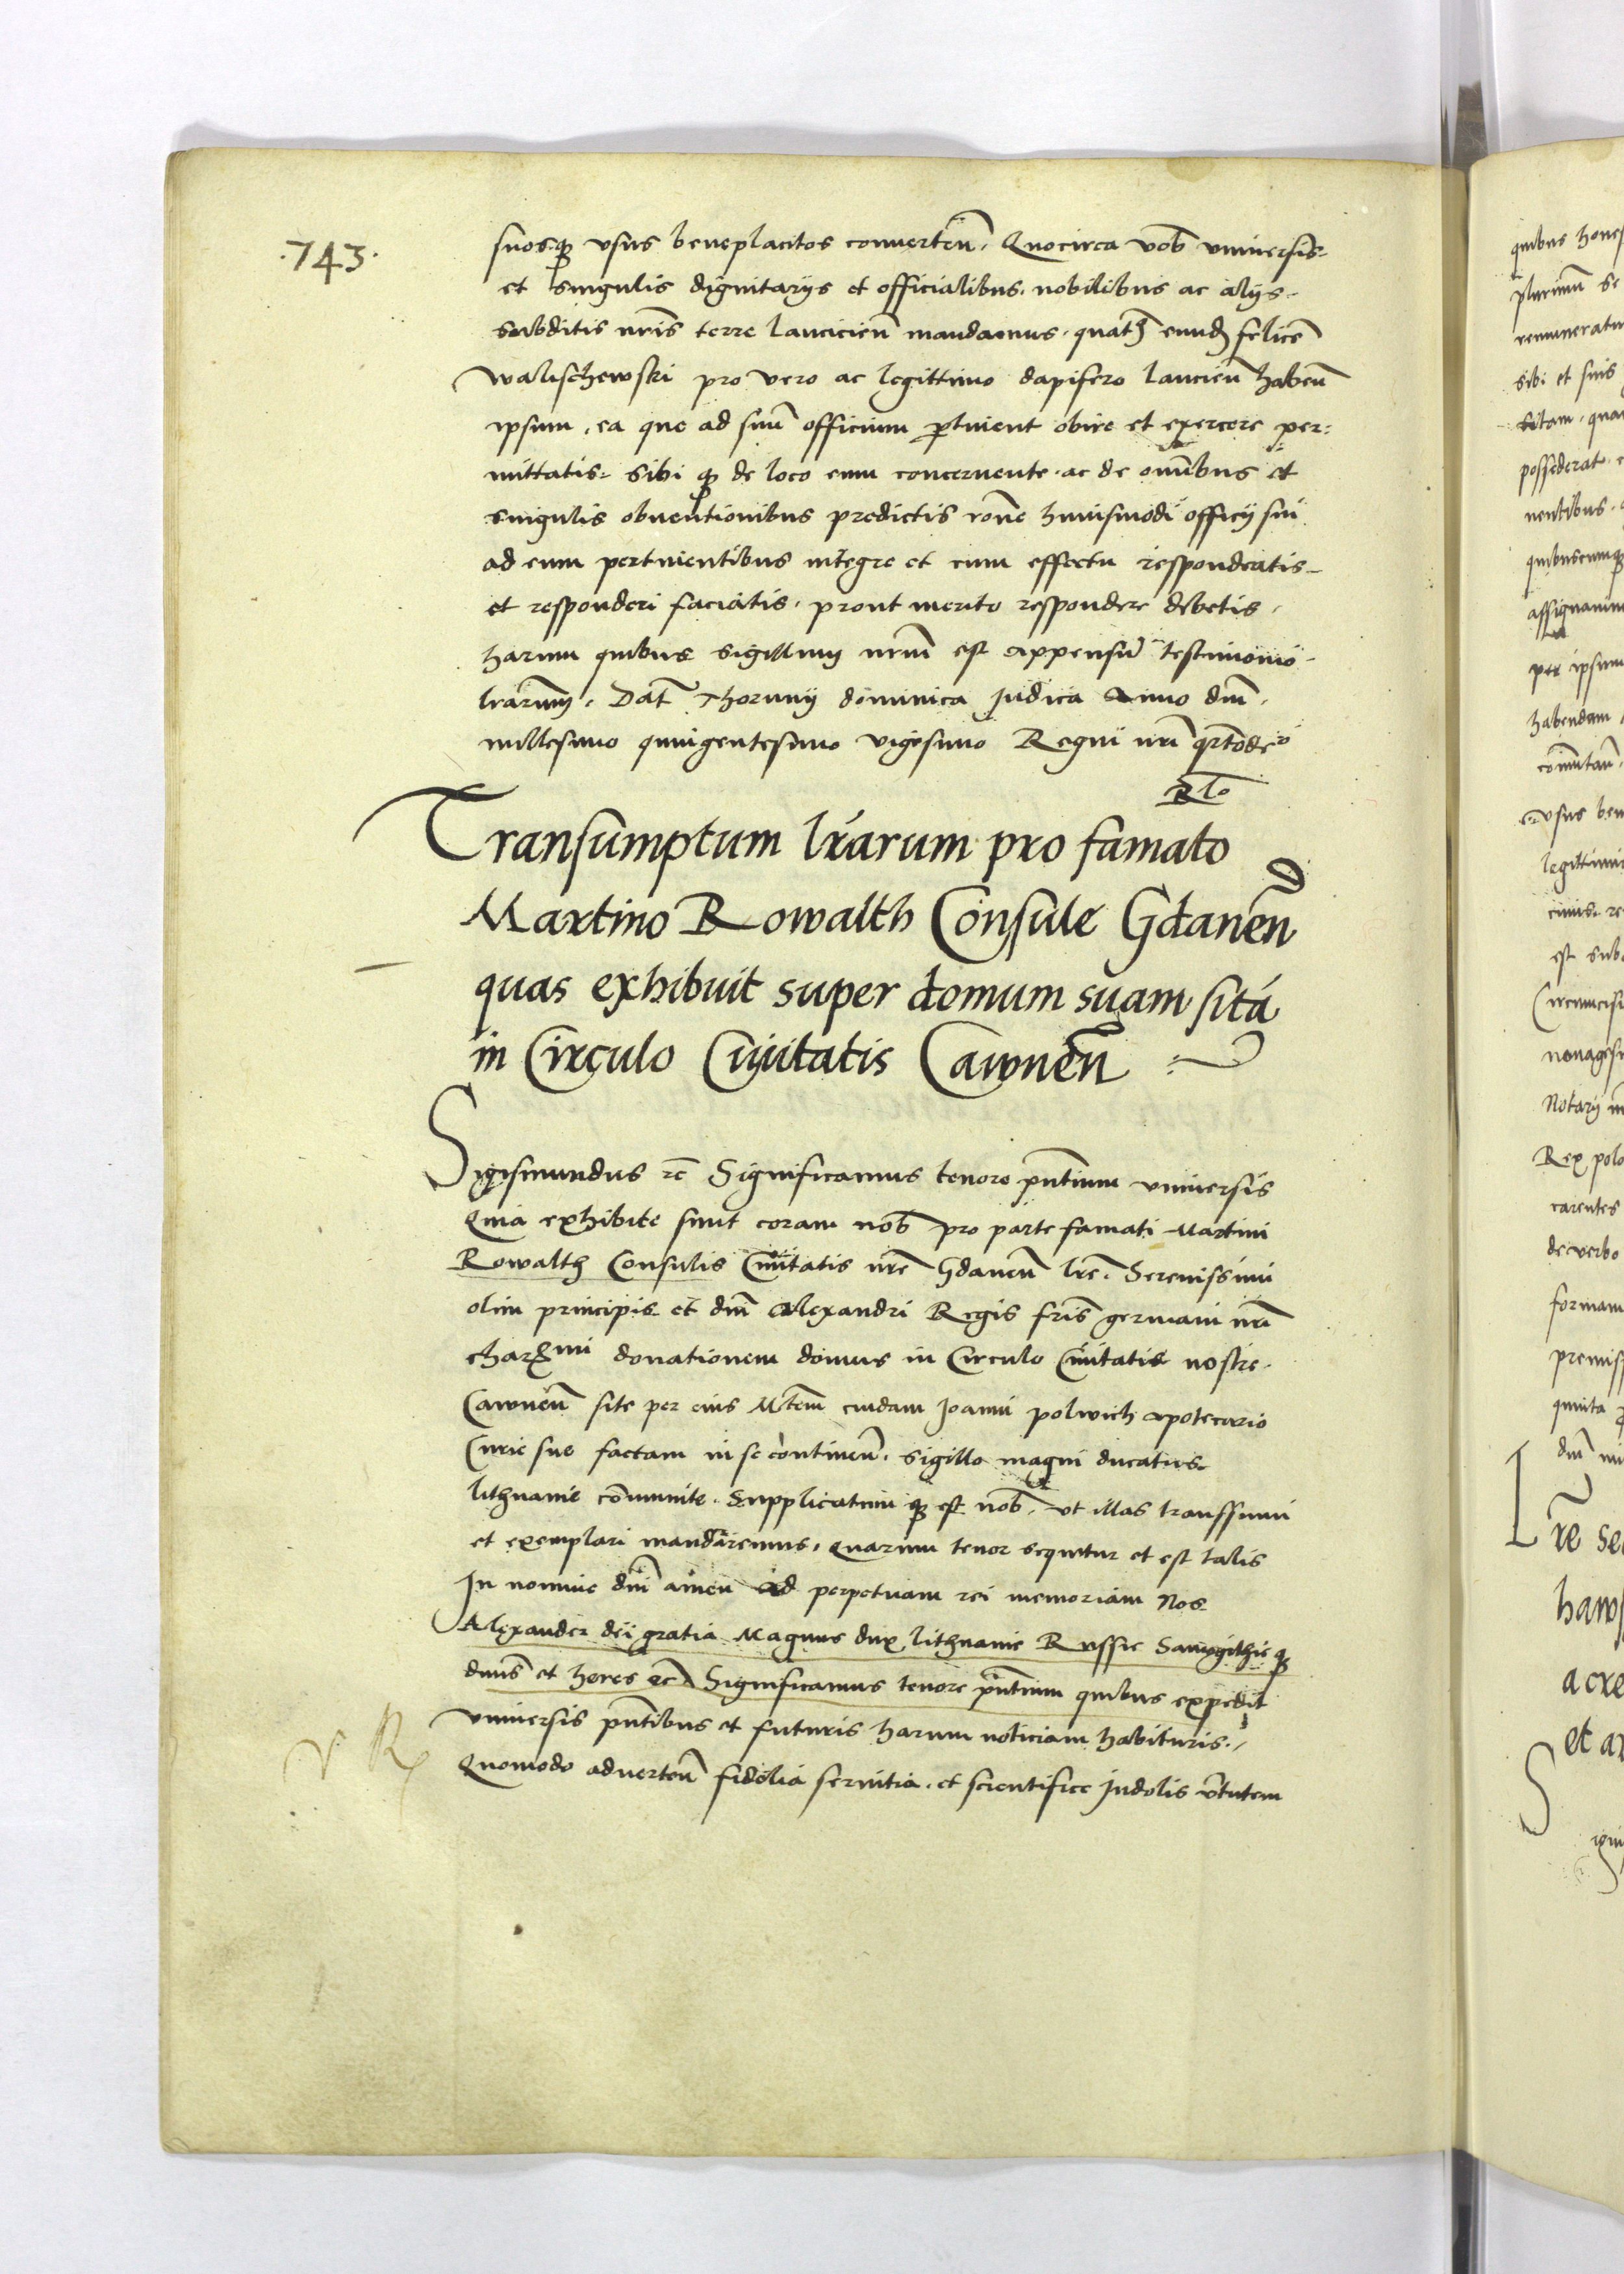 .743.
suosq₃ vsus beneplacitos conuerteñ. Quocirca vob̃ vniuersis
et singulis dignitarijs et officialibus. nobilibus ac alijs
subditis nr̃is terre lancicieñ mandamus. quatʒ eundʒ felicẽ
walischewski pro vero ac legittimo dapifero lancieñ habeñ
ipsum. ea que ad suũ officium ꝑtinent obire et exercere per:
mittatis. sibi q₃ de loco eum concernente. ac de omĩbus et
singulis obuentionibus predictis rõne huiusmodi officij sui
ad eum pertinentibus integre et cum effectu respondeatis
et responderi faciatis. prout merito respondere debetis.
harum quibus sigillum nr̃um est appensũ testimonio
lr̃arum. Dat̃ Thorunij dominica Judica Anno dñi.
millesimo quingentesimo vigesimo Regni nr̃i qr̃tode͠o
Rl̃o
Transumptum lr̃arum pro famato
Martino Rowalth Consule Gdaneñ
quas exhibuit super domum suam sitã
in Circulo Ciuitatis Cawneñ
Sigismundus rc̃ Significamus tenore pñtium vniuersis
Quia exhibite sunt coram nob̃ pro parte famati Martini
Rowalth Consulis Ciuitatis nr̃e Gdaneñ lr̃e. Serenissimi
olim principis et dñi Alexandri Regis fr̃is germani nr̃i
charmi donationem domus in Circulo Ciuitatis nostre
Cawneñ site per eius Mt̃em cuidam Joanni polwich apotecario
Curie sue factam in se contineñ. sigillo magni ducatus
lithuanie cõmunite. Supplicatum q₃ est nob̃. vt illas transsumi
et exemplari mandaremus. quarum tenor sequitur et est talis
In nomine dñi amen Ad perpetuam rei memoriam Nos
Alexander dei gratia Magnus dux lithuanie Russie Samogithie q₃
dñus et heres ec̃ Significamus tenore pñtium quibus expedit
vniuersis pñtibus et futuris harum noticiam habituris.
Quomodo aduerteñ fidelia seruitia. et scientifice Jndolis ṽtutem
v R